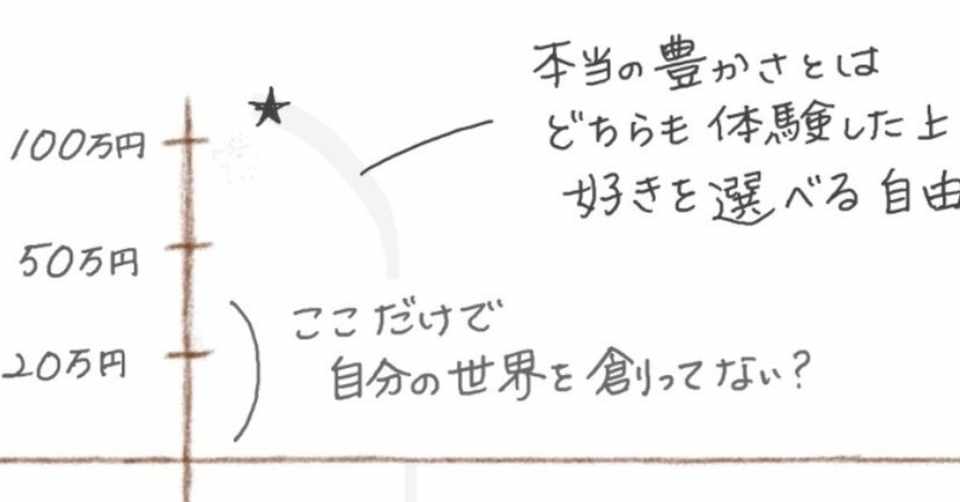 本当の豊かさとは
どちらも体験した上
好きを選べる自由
100万円
50万円
20万円
ここだけで
自分の世界を創ってない?